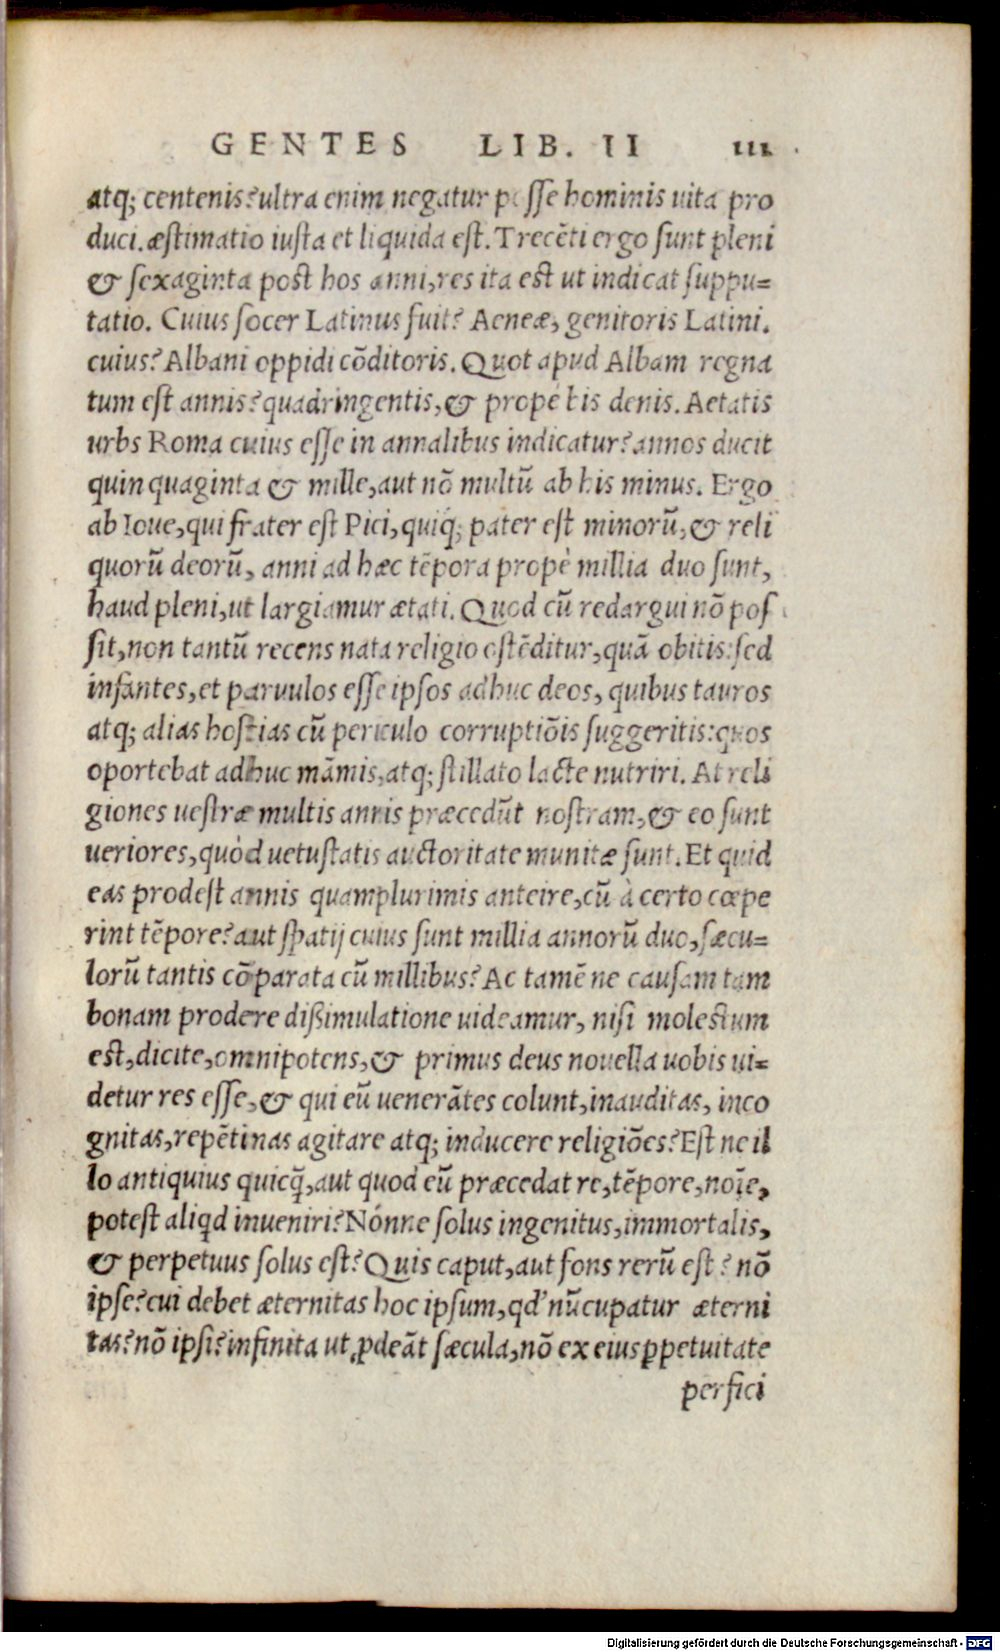 GENTES LIB. II 111
atq; centenis? ultra enim negatur posse hominis uita pro
duci. æstimatio iusta et liquida est. Trecēti ergo sunt pleni
& sexaginta post hos anni, res ita est ut indicat suppu=
tatio. Cuius socer Latinus fuit? Aeneæ, genitoris Latini.
cuius? Albani oppidi cōditoris. Quot apud Albam regna
tum est annis? quadringentis, & propè bis denis. Aetatis
urbs Roma cuius esse in annalibus indicatur? annos ducit
quinquaginta & mille, aut nō multū ab his minus. Ergo
ab Ioue, qui frater est Pici, quiq́; pater est minorū, & reli
quorū deorū, anni ad hæc tēpora propè millia duo sunt,
haud pleni, ut largiamur ætati. Quod cū redargui nō pos
sit, non tantū recens nata religio ostēditur, quā obitis: sed
infantes, et paruulos esse ipsos adhuc deos, quibus tauros
atq; alias hostias cū periculo corruptiōis suggeritis: quos
oportebat adhuc māmis, atq; stillato lacte nutriri. At reli
giones uestræ multis annis præcedūt nostram, & eo sunt
ueriores, quòd uetustatis auctoritate munitæ sunt. Et quid
eas prodest annis quamplurimis anteire, cū à certo cœpe
rint tēpore? aut spatij cuius sunt millia annorū duo, sæcu=
lorū tantis cōparata cū millibus? Ac tamē ne causam tam
bonam prodere dißimulatione uideamur, nisi molestum
est, dicite, omnipotens, & primus deus nouella uobis ui=
detur res esse, & qui eū uenerātes colunt, inauditas, inco
gnitas, repētinas agitare atq; inducere religiōes? Est ne il
lo antiquius quicq̄, aut quod eū præcedat re, tēpore, noīe,
potest aliqd inueniri? Nónne solus ingenitus, immortalis,
& perpetuus solus est? Quis caput, aut fons rerū est? nō
ipse? cui debet æternitas hoc ipsum, qd' nūcupatur æterni
tas? nō ipsi? infinita ut ꝓdeāt sæcula, nō ex eius ꝑpetuitate
perfici
Digitalisierung gefördert durch die Deutsche Forschungsgemeinschaft - DFG